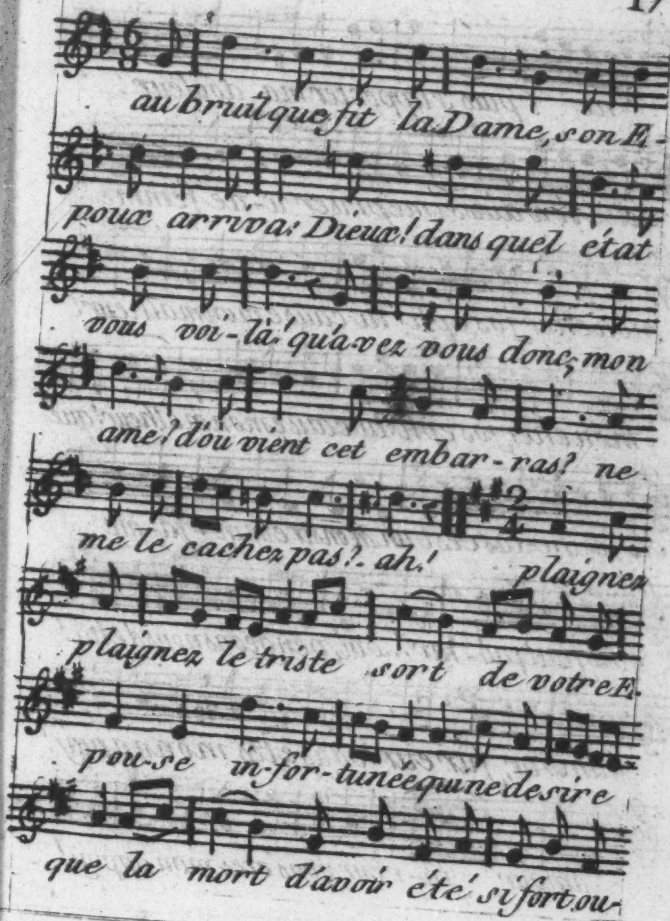 17
au bruit que fit la Dame, son E-
poux arriva: Dieux! dans quel état
vous voi-là! qu'avez vous donc, mon
ame? d'ou vient cet embar-ras? ne
me le cachez pas? ah! plaignez
plaignez le triste sort de votre E-
pou-se in-for-tunée qui ne desire
que la mort d'avoir été si fort ou-